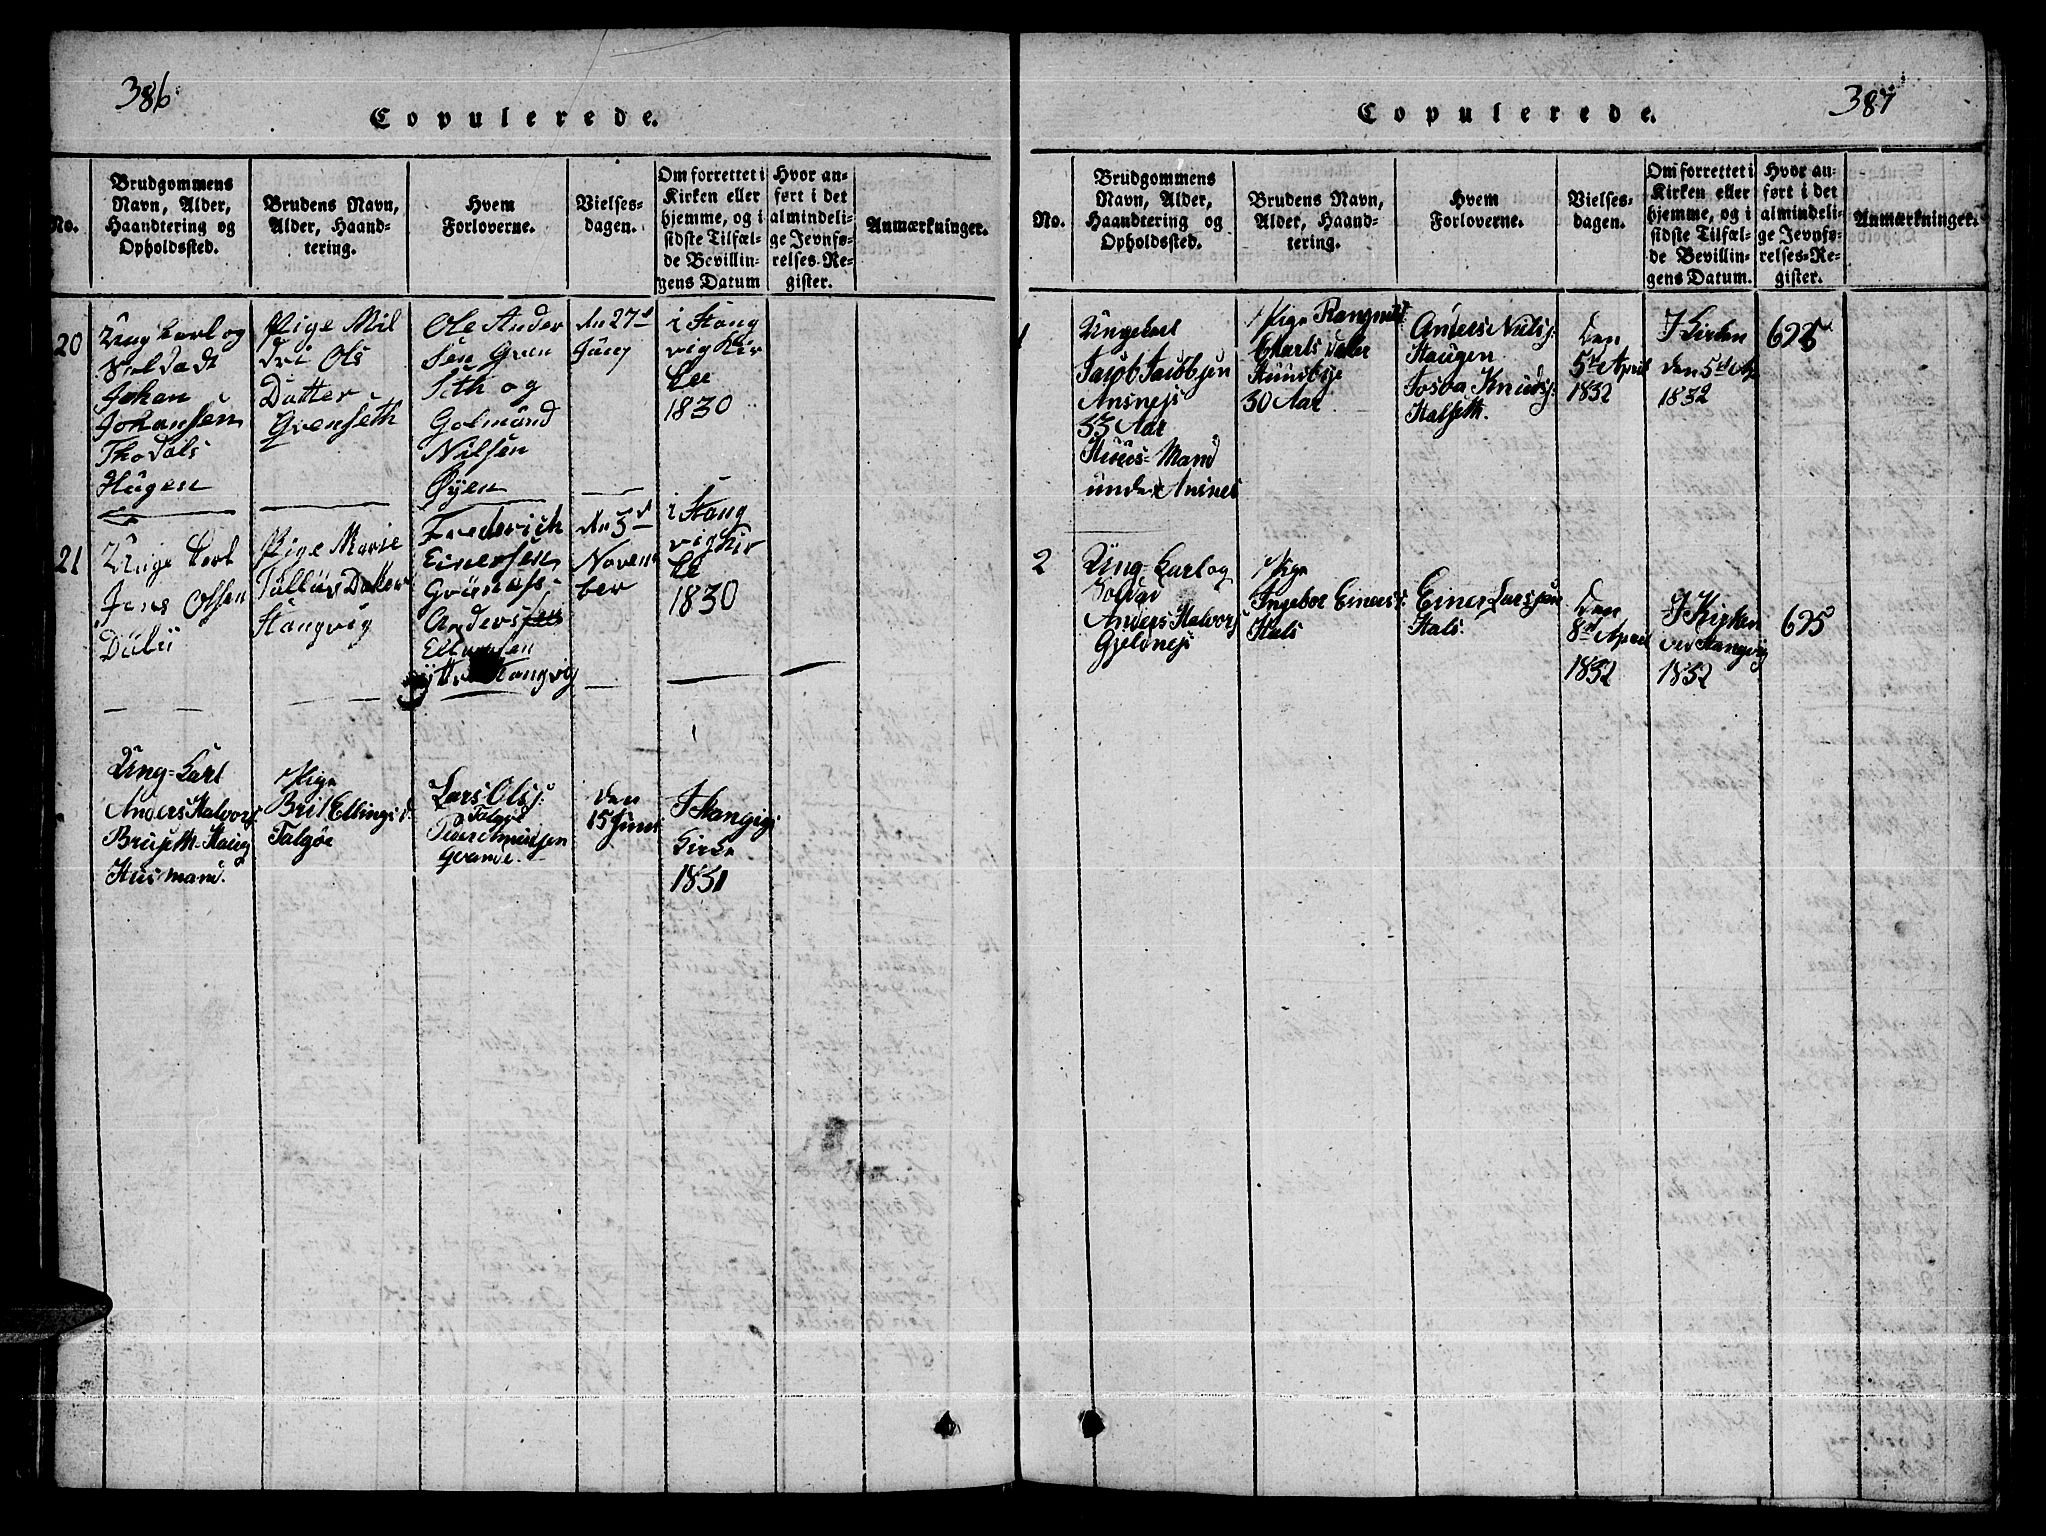 386
Copulerede.
No.
Brudgommens
Navn, Alder,
Haandtering og
Opholdssted.
Brudens Navn,
Alder, Haand-
tering.
Hvem
Forloverne.
Vielses-
dagen.
Om forrettet i
Kirken eller
hjemme, og i
sidste Tilfæl-
de Bevillin-
gens Datum
Hvor an-
ført i det
almindeli-
ge Jevnfø-
relses-Re-
gister.
Anmærkninger.
20
Ung Carl og
Soldadt
Johan
Johansen
Thodals
Hugen
Pige Mil
dri Ols
Datter
Qvenseth
Ole Ander
sen Qven
Seth og
Golmund
Nilsen
Øyen
den 27d
Juny
i Stang
vig Kir
ke
1830
21
Unge Carl
Jens Olsen
Dalii
Pige Marie
Datter
Stangvig
Frederich
Einersen
Grønnæss
Anders
Ellingsen
Stangvig
den 5d
Novem
ber
i Stang
vig Kir
ke
1830
Ung-Karl
Anders Halvors
Bruseth-Haug
Husmand.
Pige
Brit Ellings d.
Talgøe
Lars Ols:
Talgøe
Den
15 Juni
I Stangvigs
Kirke
1831
387
Copulerede.
No.
Brudgommens
Navn, Alder,
Haandtering og
Opholdssted.
Brudens Navn,
Alder, Haand-
tering.
Hvem
Forloverne.
Vielses-
dagen.
Om forrettet i
Kirken eller
hjemme, og i
sidste Tilfæl-
de Bevillin-
gens Datum.
Hvor an-
ført i det
almindeli-
ge Jevnfø-
relses-Re-
gister.
Anmærkninger.
1
Ungekarl
Jacob Jacobsen
Ansnes
33 Aar
Huus-Mand
under Ansnes
Pige Rangnild
30 Aar
Anders Niels:
Haugen
Knuds:
Halseth.
Den
5te April
1832
I Kirken
den 5te Ap
1832
625
2
Ung-Karl og
Soldat
Anders Halvors
Gjeldnes
Pige
Ingebor Einers:
Hals
Einer Larssen
Hals.
Den
8de April
1832
I Kirken
ved Stangvig
1832
625